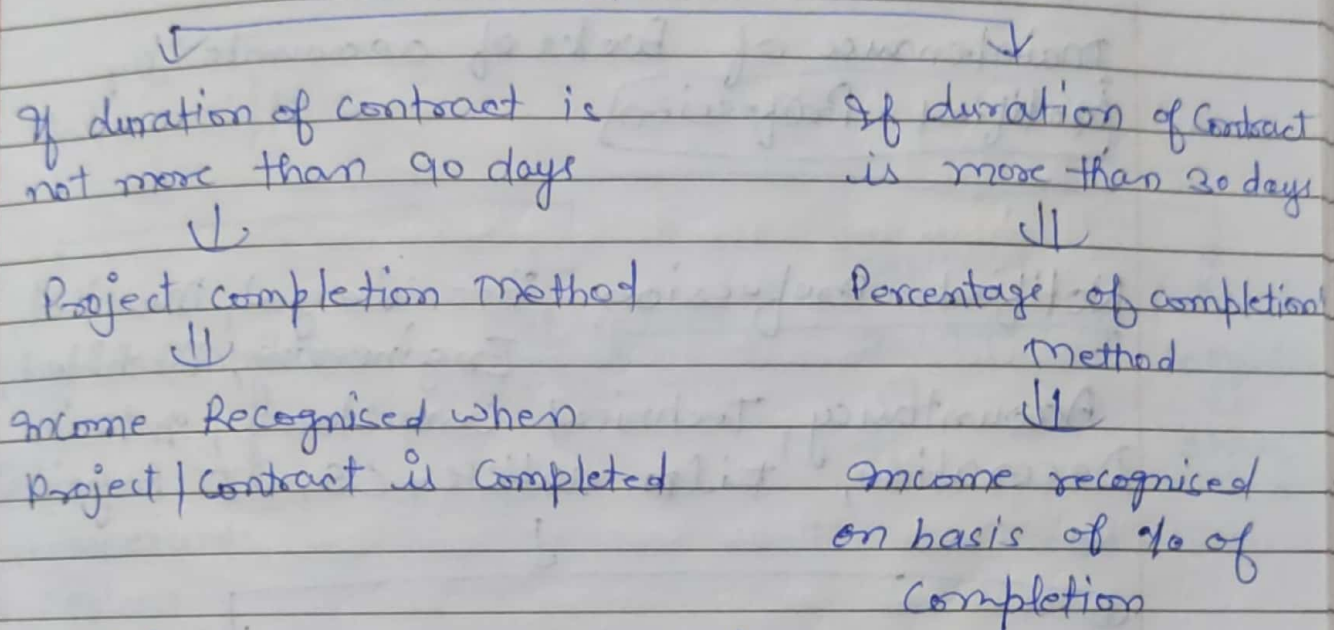 If duration of contract is
not more than 90 days
Project completion method
Income Recognised when
Project / Contract is Completed
If duration of Contract
is more than 30 days
Percentage of completion
Method
Income recognised
on basis of % of
Completion